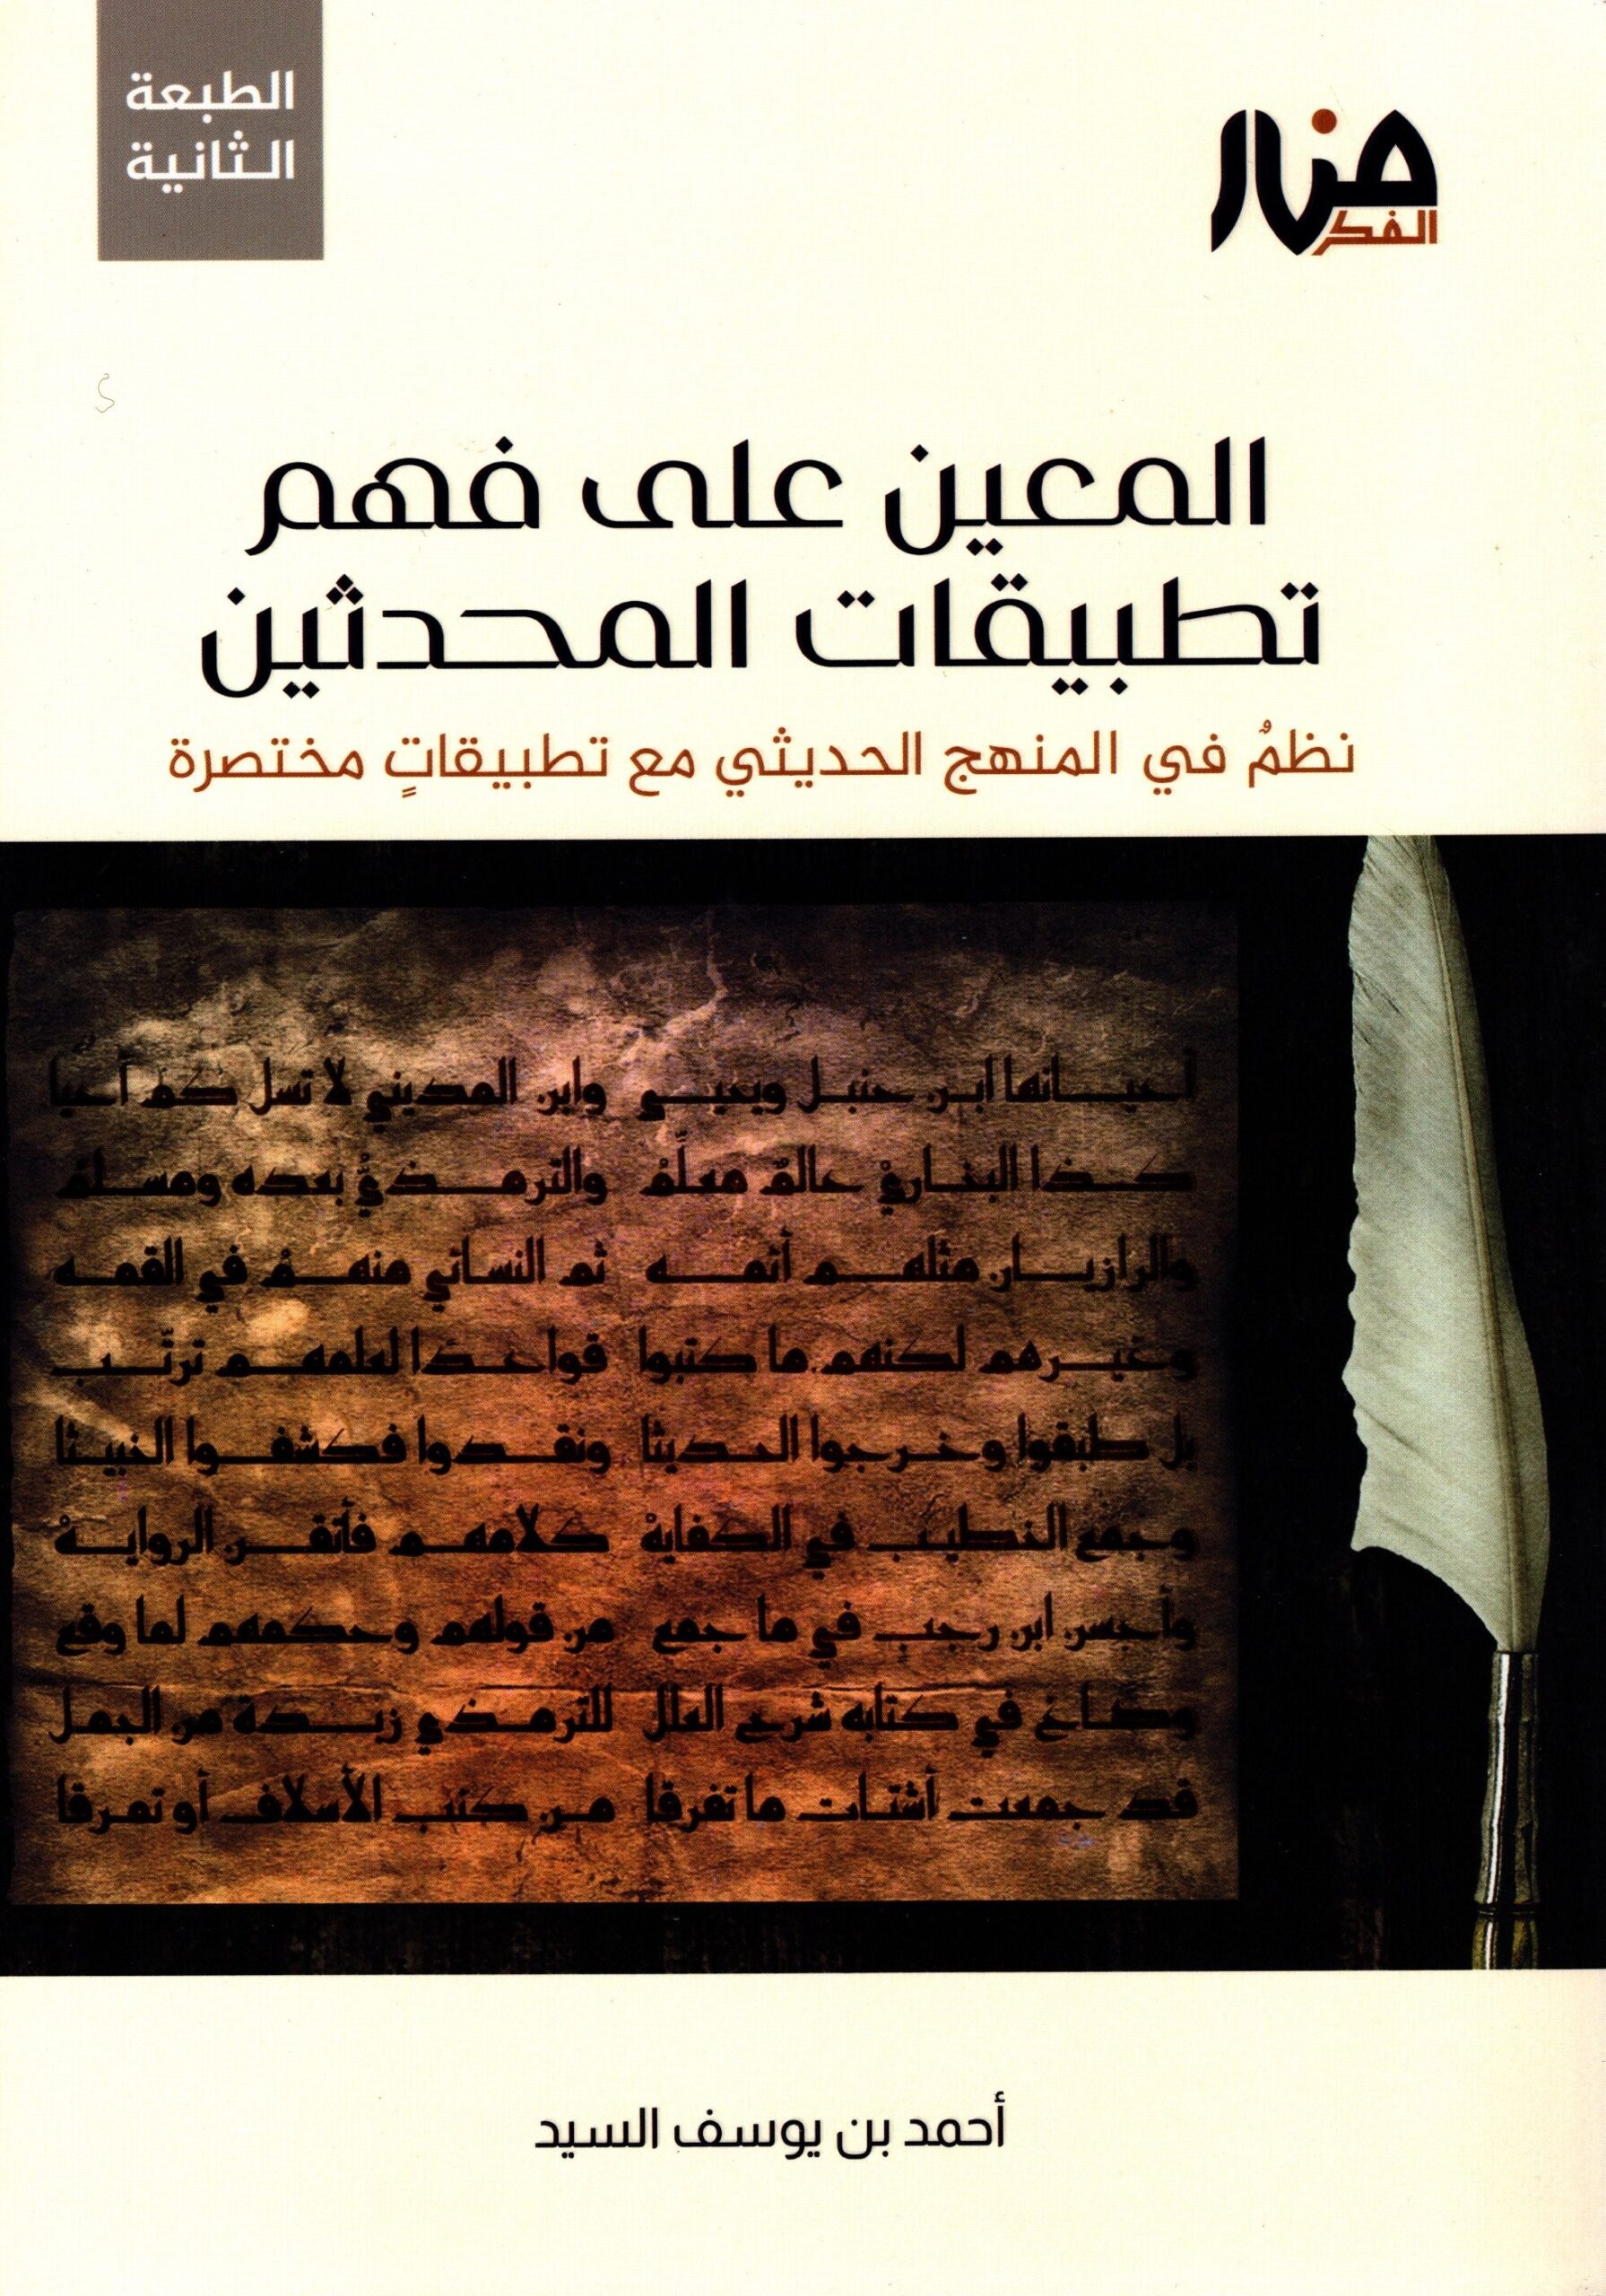 الطبعة
الثانية
منار
الفكر
المعين على فهم
تطبيقات المحدثين
نظمٌ في المنهج الحديثي مع تطبيقاتٍ مختصرة
ابن حنبل ويحيى وابن المديني لا تسل كم
كذا البخاريْ عالمٌ معلِّمُ والترمذيُّ بعده ومسلمُ
والرازيان مثلهم أئمه ثم النسائي منهمُ في القمه
وغيرهم لكنهم ما كتبوا قواعدًا لعلمهم ترتّب
بل طبقوا وخرجوا الحديثا ونقدوا فكشفوا الخبيثا
وجمع الخطيب في الكفايهْ كلامهم فأتقن الروايهْ
وأحسن ابن رجب في ما جمع من قولهم وحكمهم لما وقع
وصاغ في كتابه شرح العلل للترمذي زبدة من الجمل
قد جمعت أشتات ما تفرقا من كتب الأسلاف أو تمزقا
أحمد بن يوسف السيد